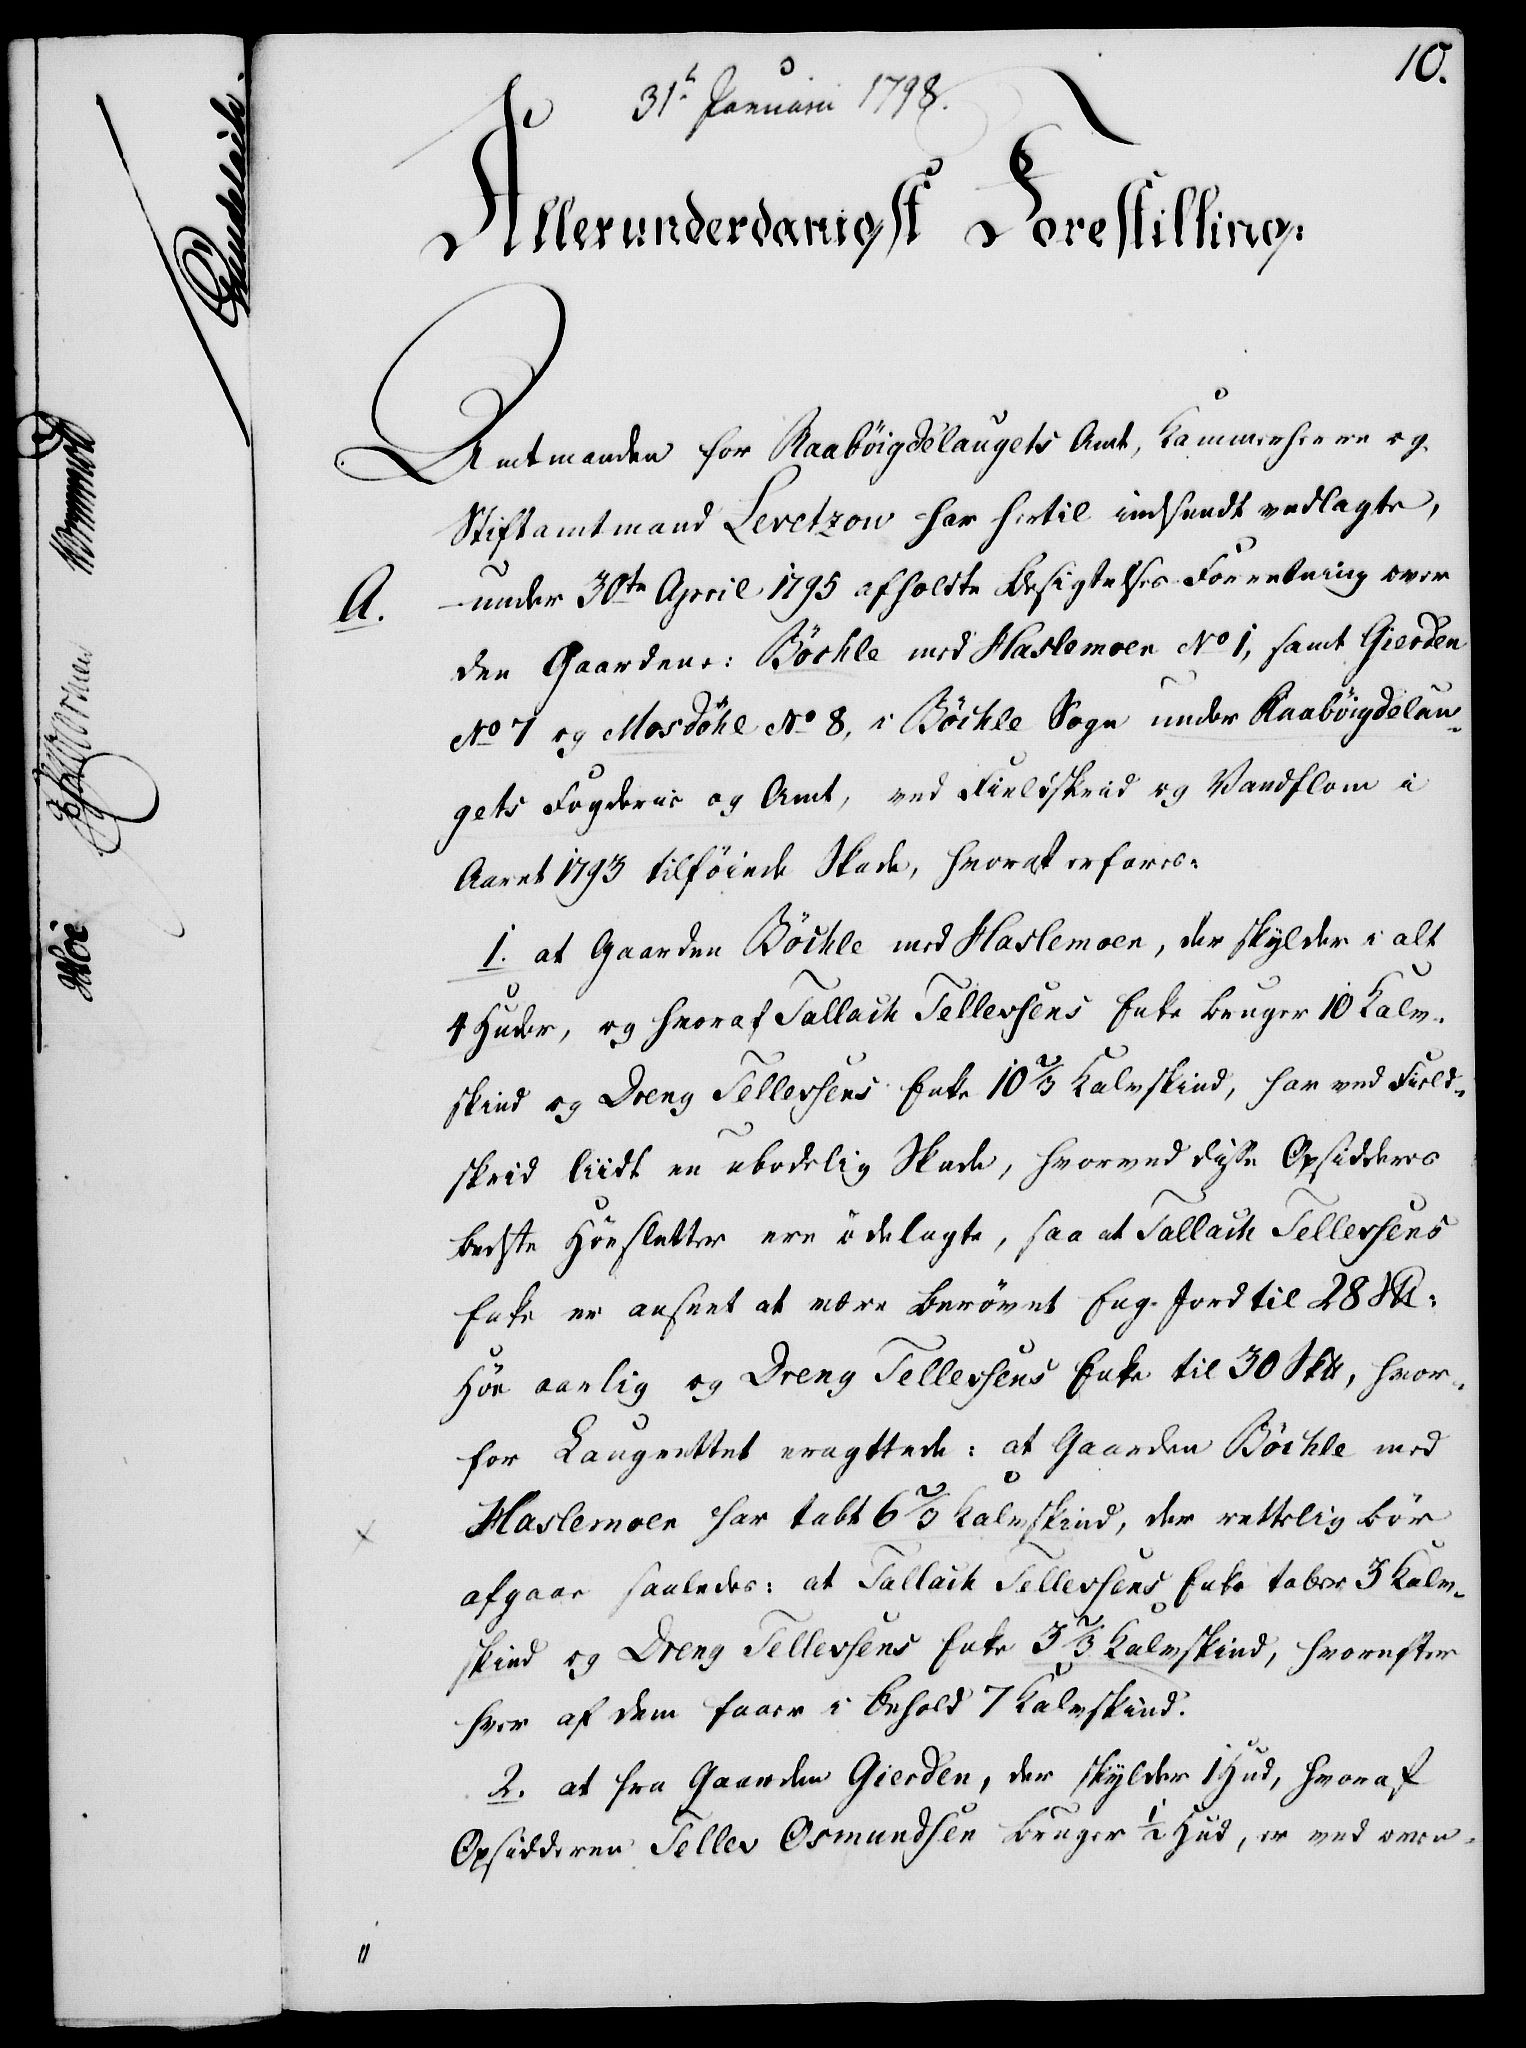 10.
31t Januarii 1798.
Allerunderdanigst Forestilling:
Amtmanden for Raaböigdelaugets Amt, Kammerherre og
Stiftamtmand Levetzow har hertil indsendt vedlagte,
A.
under 30te April 1795 afholdte Besigtelses Forretning over
den Gaardene: Böchle med Haslemoen No 1, samt Gierden
No 7 og Mosdöhl No 8, i Böchle Sogn under Raaböigdelau-
gets Fogderie og Amt, ved Fieldskred og Vandflom i
Aaret 1793 tilföiede Skade, hvoraf erfares:
1. at Gaarden Böchle med Haslemoen, der skylder i alt
4 Huder, og hvoraf Tallach Tellevsens Enke bruger 10 Kalv-
skind og Dreng Tellevsens Enke 10 2/3 Kalvskind, har ved Field-
skrid liidt en ubodelig Skade, hvorved disse Opsidderes
bedste Höesletter ere ödelagte, saa at Tallach Tellevsens
Enke er anseet at være berövet Eng-Jord til 28 S℔:
Höe aarlig og Dreng Tellevsens Enke til 30 Sk℔, hvor-
for Laugrettet eragttede: at Gaarden Böchle med
Haslemoen har tabt 6 2/3 Kalvskind, der rettelig bör
afgaae saaledes: at Tallach Tellevsens Enke taber 3 Kalv-
skind og Dreng Tellevsens Enke 3 2/3 Kalvskind, hvorefter
hver af dem faaer i Behold 7 Kalvskind.
2. at fra Gaarden Gierden, der skylder 1 Hud, hvoraf
Opsidderen Tellev Osmundsen bruger 1/2 Hud, er ved oven-